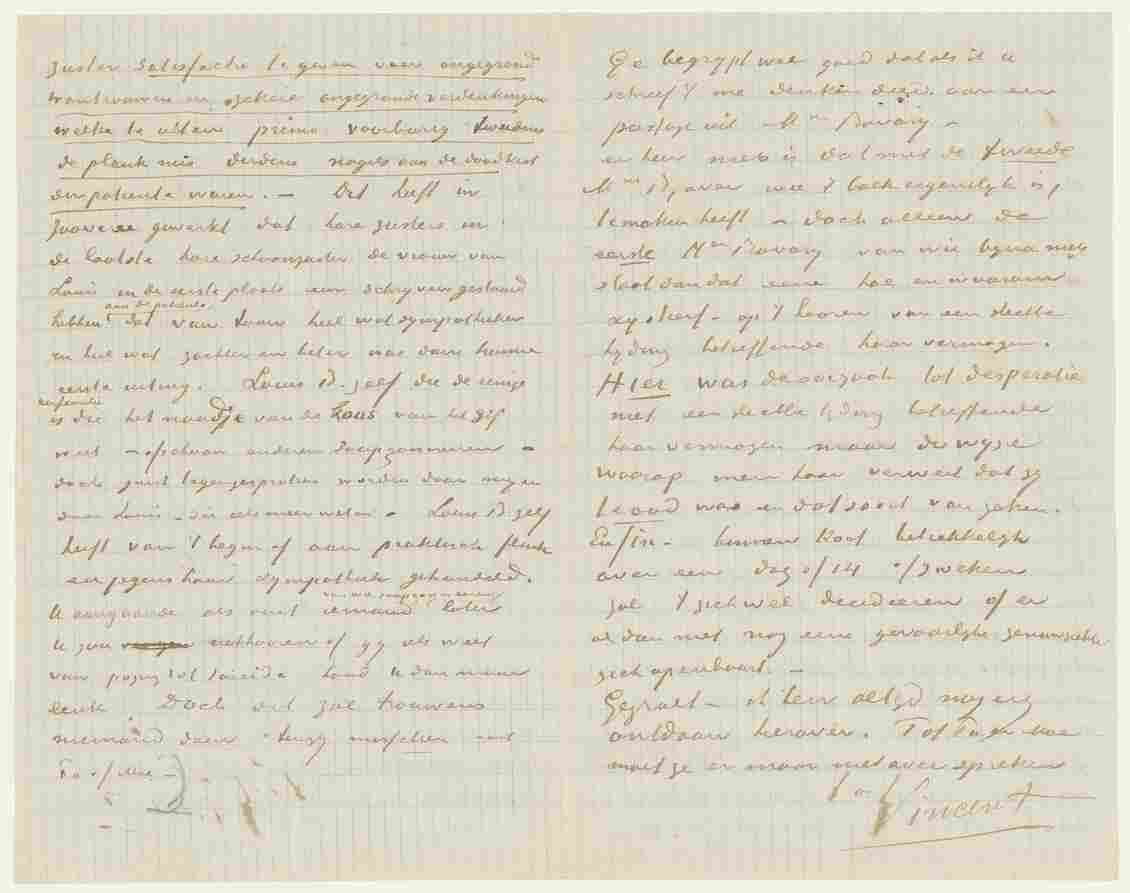 zuster satisfactie te geven voor ongegrond
wantrouwen en zekere ongegronde verdenkingen
welke te uiten primo voorbarig tweedens
de plank mis derdens nagels aan de doodkist
der patiente waren. – Dit heeft in
zooverre gewerkt dat hare zusters en
de laatste hare schoonzuster de vrouw van
Louis in de eerste plaats een schrijven gestuurd
aan de patiente
hebben dat van toon heel wat sympathieker
en heel wat zachter en beter was dan hunne
eerste uiting. Louis B. zelf die de eenige
is die het naadje van de kous van het gif
weet – ofschoon anderen
doch juist tegengesproken worden door mij en
door Louis – die iets meer weten – Louis B. zelf
heeft van 't begin af aan praktisch flink
en jegens haar sympathiek gehandeld.
U aangaande als ooit iemand later
U zou uithooren of gij iets weet
van poging tot suicide houd U dan maar
leuk. Doch dit zal trouwens
niemand doen tenzij misschien ooit
Pa of Moe –
Ge begrijpt wel goed dat als ik U
schreef 't me denken deed aan een
passage uit Mme Bovary –
en hier niets is dat met de tweede
Mme Bovary wie 't boek eigenlijk is,
te maken heeft – doch alleen de
eerste Mme Bovary van wie bijna niets
staat dan dat eene hoe en waarom
zij stierf – op 't hooren van een slechte
tijding betreffende haar vermogen.
Hier was de oorzaak tot desperatie
niet een slechte tijding betreffende
haar vermogen maar de wijze
waarop men haar verweet dat zij
te oud was en dat soort van zaken.
Enfin – binnen kort betrekkelijk
over een dag of 14 of 3 weken
zal 't zich wel decideeren of er
al dan niet nog eene gevaarlijke zenuwziekte
zich openbaart. –
Gegroet – ik ben altijd nog erg
ontdaan hierover. Tot Pa en Moe
moet ge er maar niet over spreken
Vincent